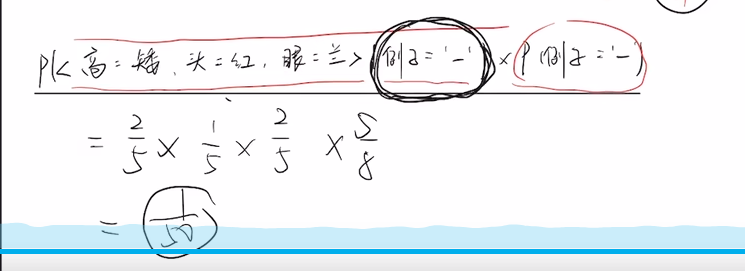 P(<高=矮、头=红,眼=兰>|例子='-')×P(例子='-')
= 2/5 × 1/5 × 2/5 × 5/8
= 1/50